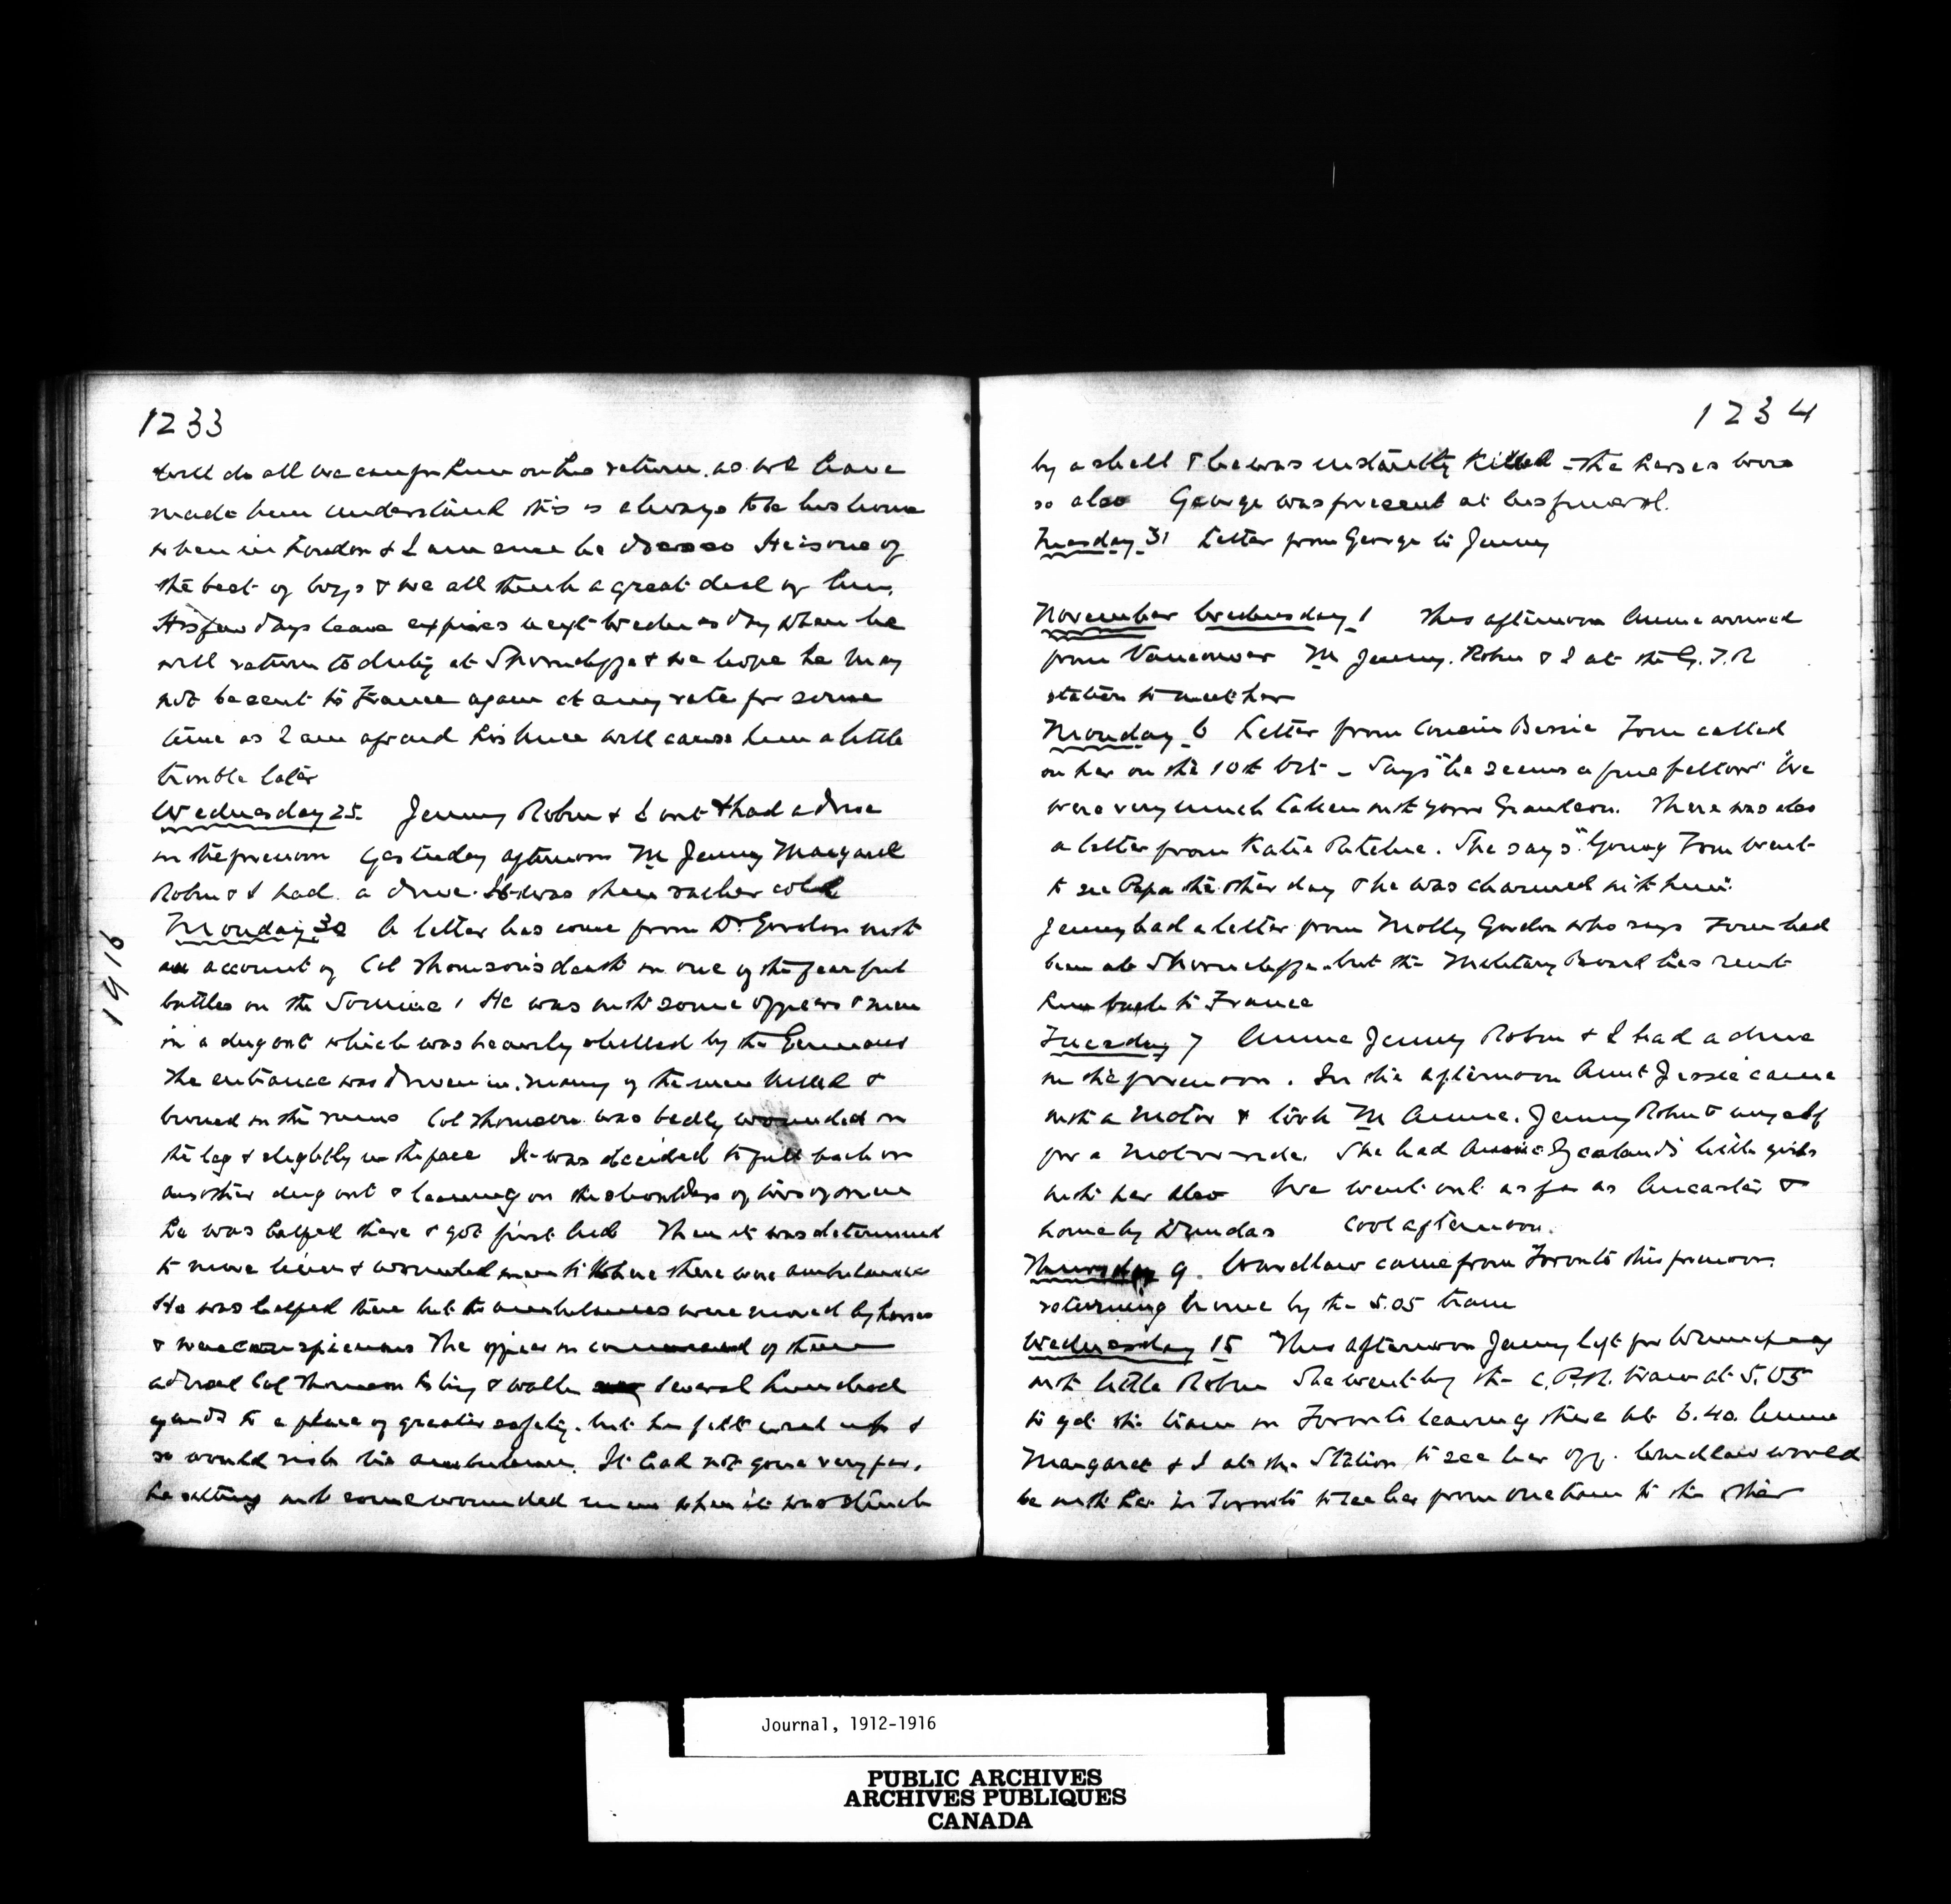 1233
will do all we can for him on his return. as we have
made him understand this is always to be his home
when in London & I am sure he does so He is one of
the best of boys & we all think a great deal of him.
His few days leave expires next Wednesday when he
will return to duty at Shorncliffe & we hope he may
not be sent to France again at any rate for some
time as I am afraid his knee will cause him a little
trouble later
Wednesday 25. Jenny Robin & I out & had a drive
in the forenoon Yesterday afternoon M Jenny Margaret
Robin & I had a drive. It was then rather cold
Monday 30 A letter has come from Dr Gordon with
an account of Col Thomson's death in one of the fearful
battles on the Somme! He was with some officers & men
in a dug out which was heavily shelled by the Germans
The entrance was driven in. many of the men killed &
buried in the ruins Col Thomson was badly wounded in
the leg & slightly in the face It was decided to fall back on
another dug out & leaning on the shoulders of two of men
he was helped there & got first aid Then it was determined
to move him & wounded men to where there were ambulances
He was helped there but the ambulances were moved by horses
& were conspicuous The officer in command of them
advised Col Thomson to try & walk several hundred
yards to a place of greater safety. but he felt used up &
so would risk the ambulance. It had not gone very far,
he sitting with some wounded men when it was struck
1916
1234
by a shell & he was instantly killed - the horses were
so also George was present at his funeral.
Tuesday 31 Letter from George to Jenny
November Wednesday 1 This afternoon Annie arrived
from Vancouver M Jenny. Robin & I at the G.T.R
station to meet her
Monday 6 Letter from Cousin Bessie Tom called
on her on the 10th Oct - Says "he seems a fine fellow" We
were very much taken with your Grandson. There was also
a letter from Katie Ritchie. She says "Young Tom went
to see Papa the other day & he was charmed with him".
Jenny had a letter from Molly Gordon who says Tom had
been at Shorncliffe. but the Military Board has sent
him back to France
Tuesday 7 Annie Jenny Robin & I had a drive
in the forenoon. In the afternoon Aunt Jessie came
with a motor & took M Annie. Jenny Robin & myself
for a motor ride. She had Zealand's little girls
with her also We went out as far as Ancaster &
home by Dundas Cool afternoon.
Thursday 9. Wardlaw came from Toronto this forenoon
returning home by the 5.05 train
Wednesday 15 This afternoon Jenny left for Winnipeg
with little Robin She went by the C.P.R. train at 5.05
to get the train in Toronto leaving there at 6.40. Annie
Margaret & I at the Station to see her off. Wardlaw would
be with her in Toronto to see her from one train to the other
Journal, 1912-1916
PUBLIC ARCHIVES
ARCHIVES PUBLIQUES
CANADA